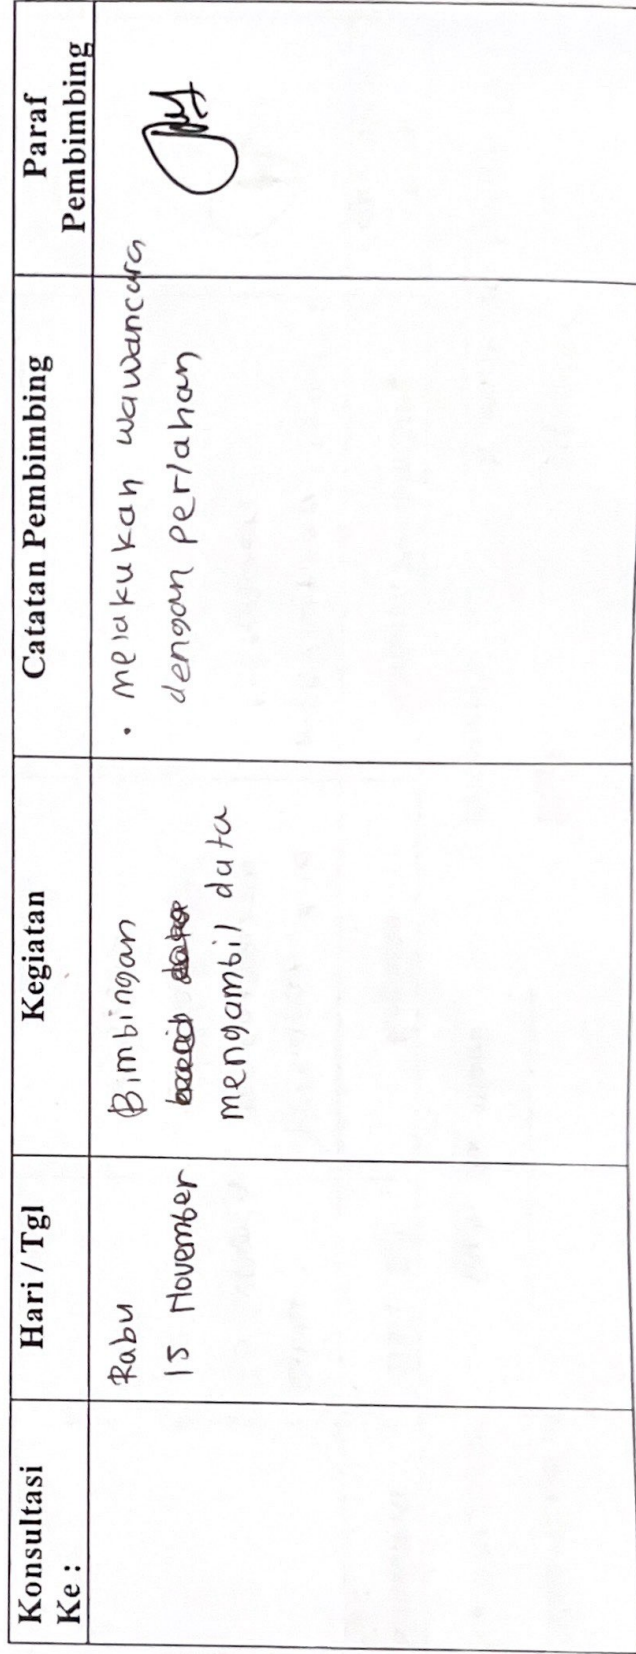 Konsultasi
Ke :
Hari / Tgl
Kegiatan
Catatan Pembimbing
Paraf
Pembimbing
Rabu
15 November
Bimbingan
mengambil data
• melakukan wawancara
dengan perlahan